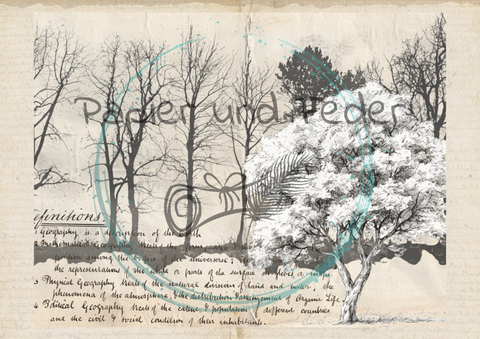 Papier und Feder
efinitions.
1 Geography is a description of the Earth
2 Mathematical Geography treats the form,
position among the of the universe;
the representations of the whole or parts of the surface on globes or maps
3 Physical Geography treats of the natural divisions of land and water, the
phenomena of the atmosphere, & the distribution & arrangement of Organic Life.
4 Political Geography treats of the extent & population of different countries
and the civil & social condition of their inhabitants.